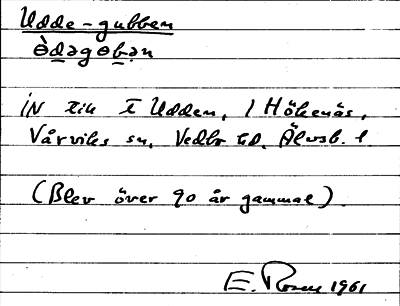 Udde-gubben
ödagobən
IN till t Udden, 1 Hökenäs,
Vårviks sn, Vedbo hd. Älvsb. l.
(Blev över 90 år gammal).
E. Rosen 1961